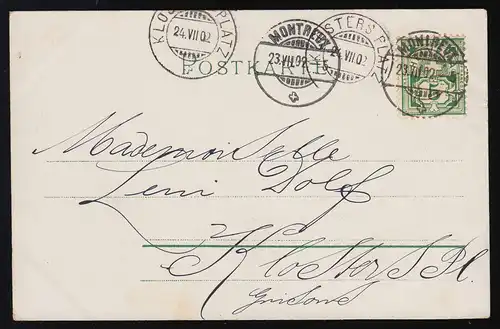 KLOSTERS PLATZ
24.VII.02
MONTREUX
23.VII.02
KLOSTERS PLATZ
24.VII.02
MONTREUX
23.VII.02
POSTKARTE
Mademoiselle
Leni Dolf
Klosters Pl.
Grisons